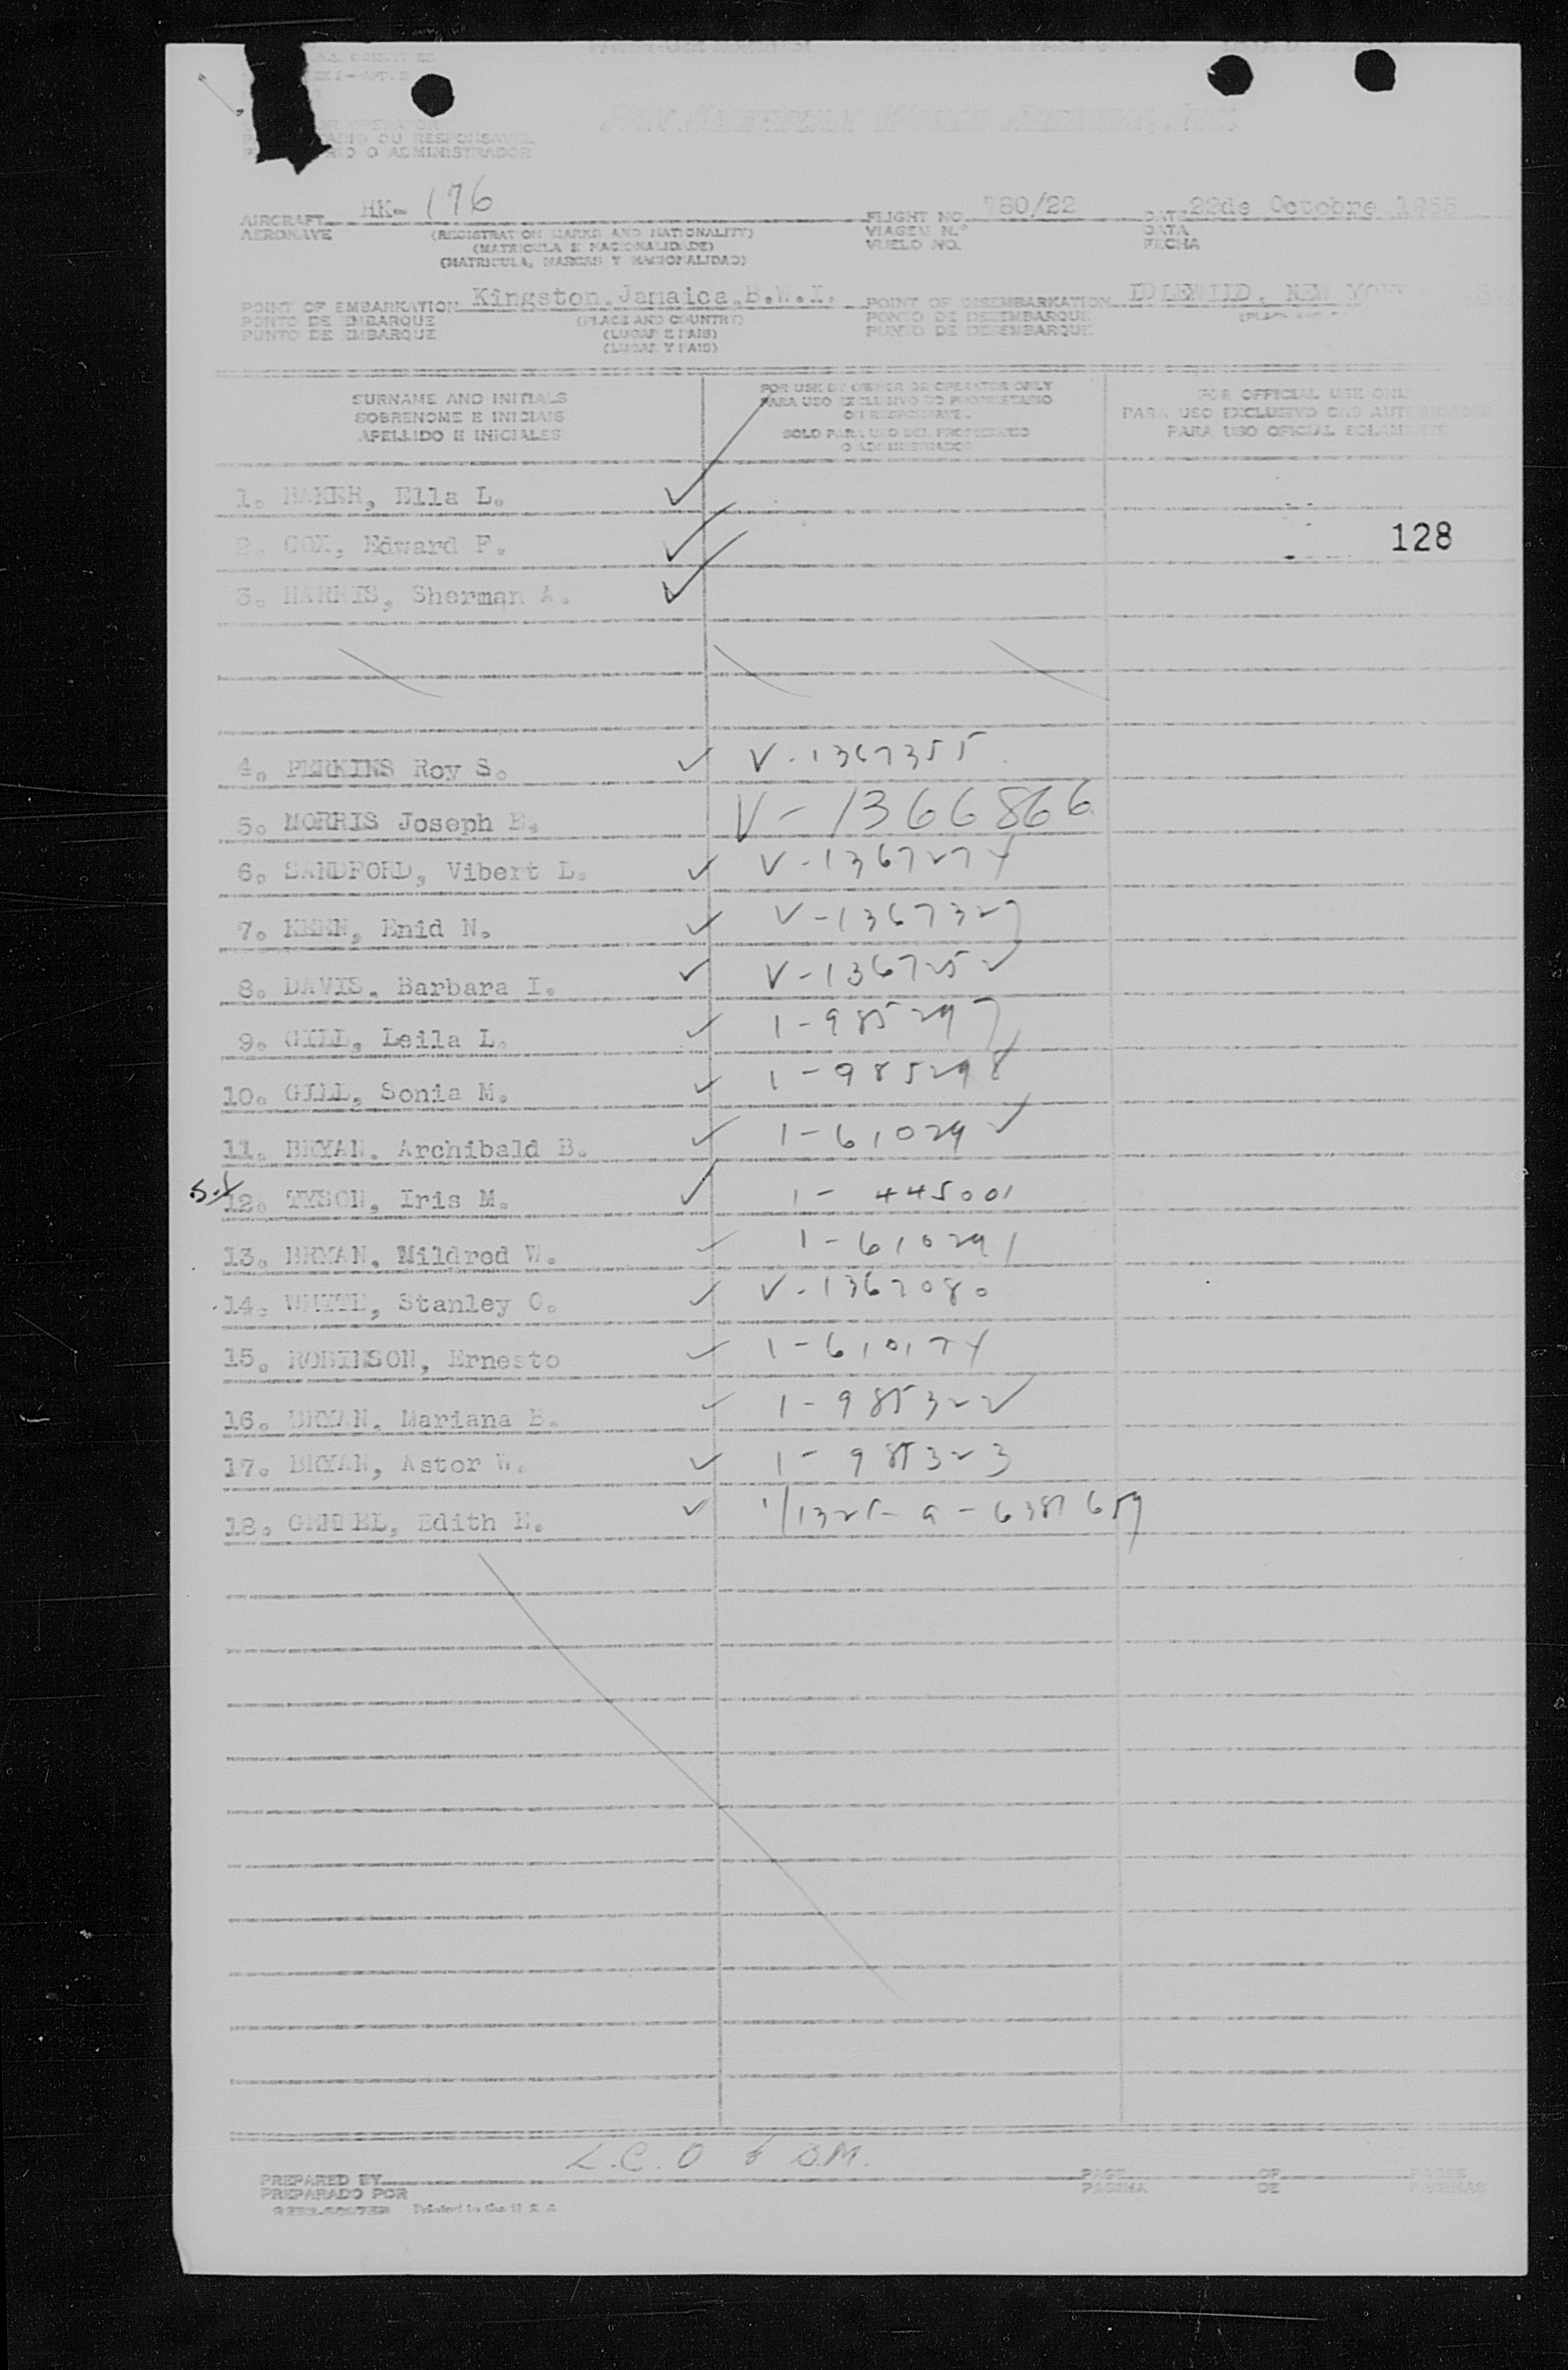 OU RESPONSAVEL
O ADMINISTRADOR
AIRCRAFT HK-176 FLIGHT NO. 780/22 DATE 22de Octobre
AERONAVE (REGISTRATION MARKS AND NATIONALITY) VIAGEM N.º DATA
(MATRICULA E NACIONALIDADE) VUELO NO. FECHA
(MATRICULA, MARCAS Y NACIONALIDAD)
POINT OF EMBARKATION Kingston.Jamaica.B.W.I. POINT OF DISEMBARKATION IDLEWILD, NEW YORK
PONTO DE EMBARQUE (PLACE AND COUNTRY) PONTO DE DESEMBARQUE
PUNTO DE EMBARQUE (LUGAR E PAIS) PUNTO DE DESEMBARQUE
(LUGAR Y PAIS)
SURNAME AND INITIALS FOR USE BY OWNER OR OPERATOR ONLY FOR OFFICIAL USE ONLY
SOBRENOME E INICIAIS PARA USO EXCLUSIVO DO PROPRIETARIO PARA USO EXCLUSIVO DAS AUTORIDADES
APELLIDO E INICIALES SOLO PARA USO DEL PROPIETARIO PARA USO OFICIAL SOLAMENTE
O ADMINISTRADOR
1. BAKER, Ella L.
2. COX, Edward F. 128
3. HARRIS, Sherman A.
4. PERKINS Roy S. V-1367355
5. MORRIS Joseph E. V-1366866
6. SANDFORD, Vibert L. V-1367274
7. KEEN, Enid N. V-1367327
8. DAVIS. Barbara I. V-1367252
9. GILL, Leila L. 1-985297
10. GILL, Sonia M. 1-985298
11. BRYAN. Archibald B. 1-610292
12. TYSON, Iris M. 1-445001
13. BRYAN. Mildred W. 1-610291
14. WHYTE, Stanley O. V-1367080
15. ROBINSON, Ernesto 1-610174
16. BRYAN. Mariana B. 1-985322
17. BRYAN, Astor W. 1-985323
18. Edith E.
L.C.O & O.M.
PREPARED BY PAGE OF PAGES
PREPARADO POR PAGINA DE PAGINAS
Printed in the U S A